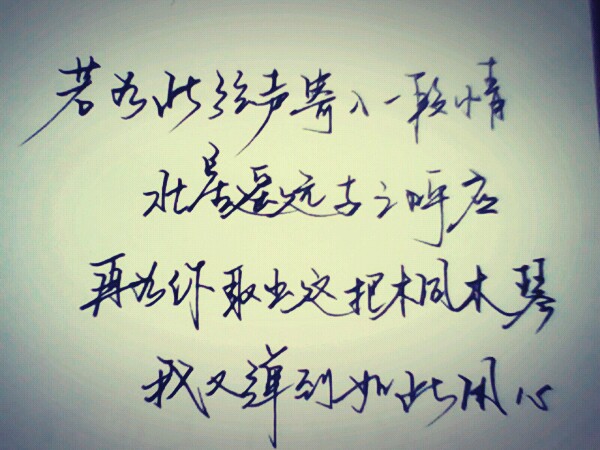 若为此弦声寄入一段情
北星遥远与之呼应
再为你取出这把桐木琴
我又弹到如此用心